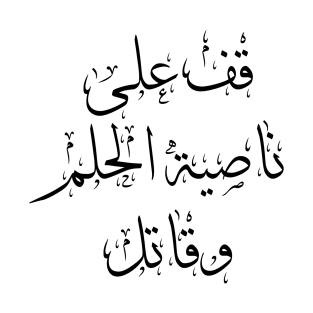 قف على
ناصية الحلم
وقاتل